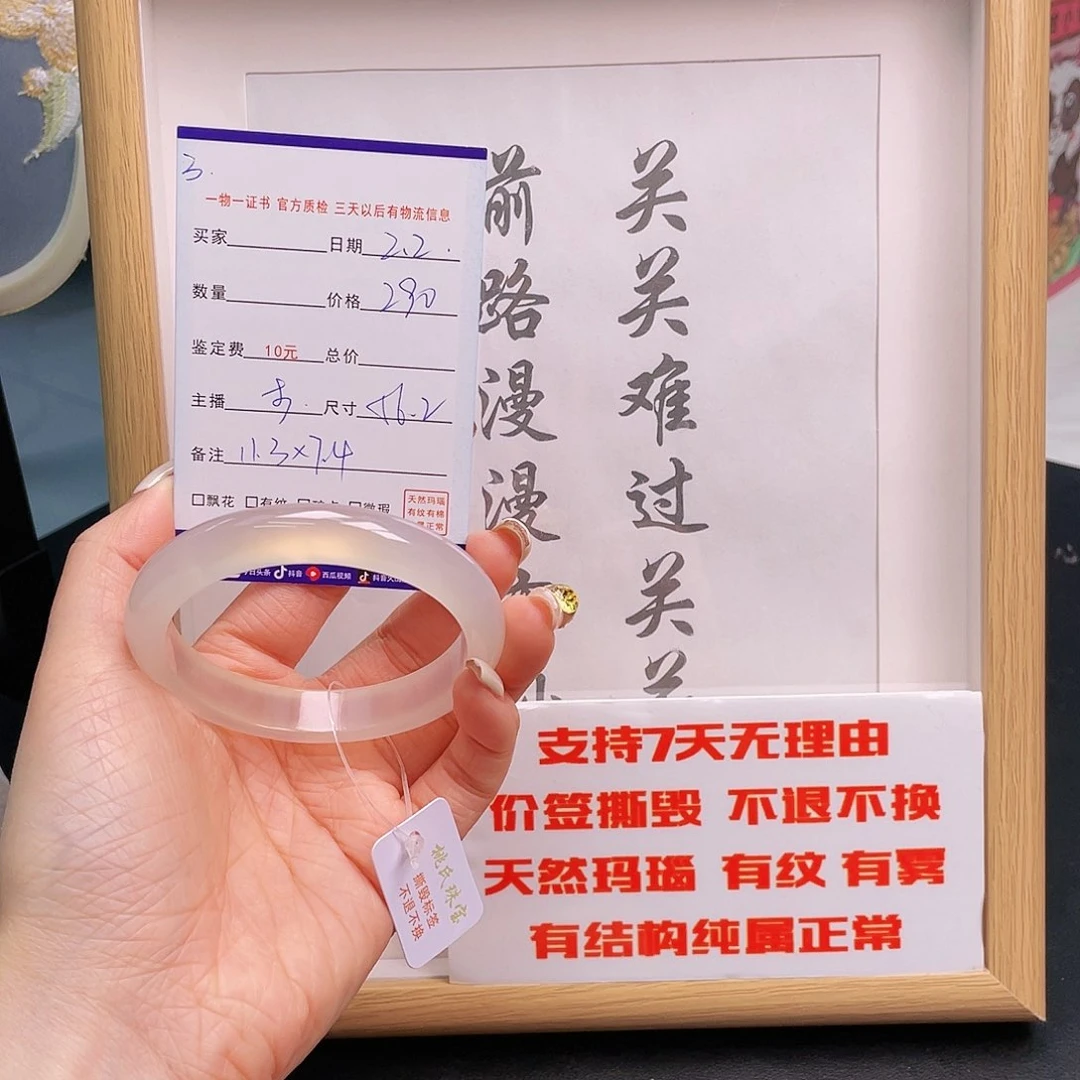 3.
一物一证书 官方质检 三天以后有物流信息
买家 日期 2.2.
数量 价格 290
鉴定费 10元 总价
主播 尺寸 56.2
备注 11.3×7.4
□飘花 □有纹
天然玛瑙
有纹有棉
正常
头条 抖音 西瓜视频
关关难过关关
前路漫漫
支持7天无理由
价签撕毁 不退不换
天然玛瑙 有纹 有雾
有结构纯属正常
姚氏珠宝
撕毁标签
不退不换